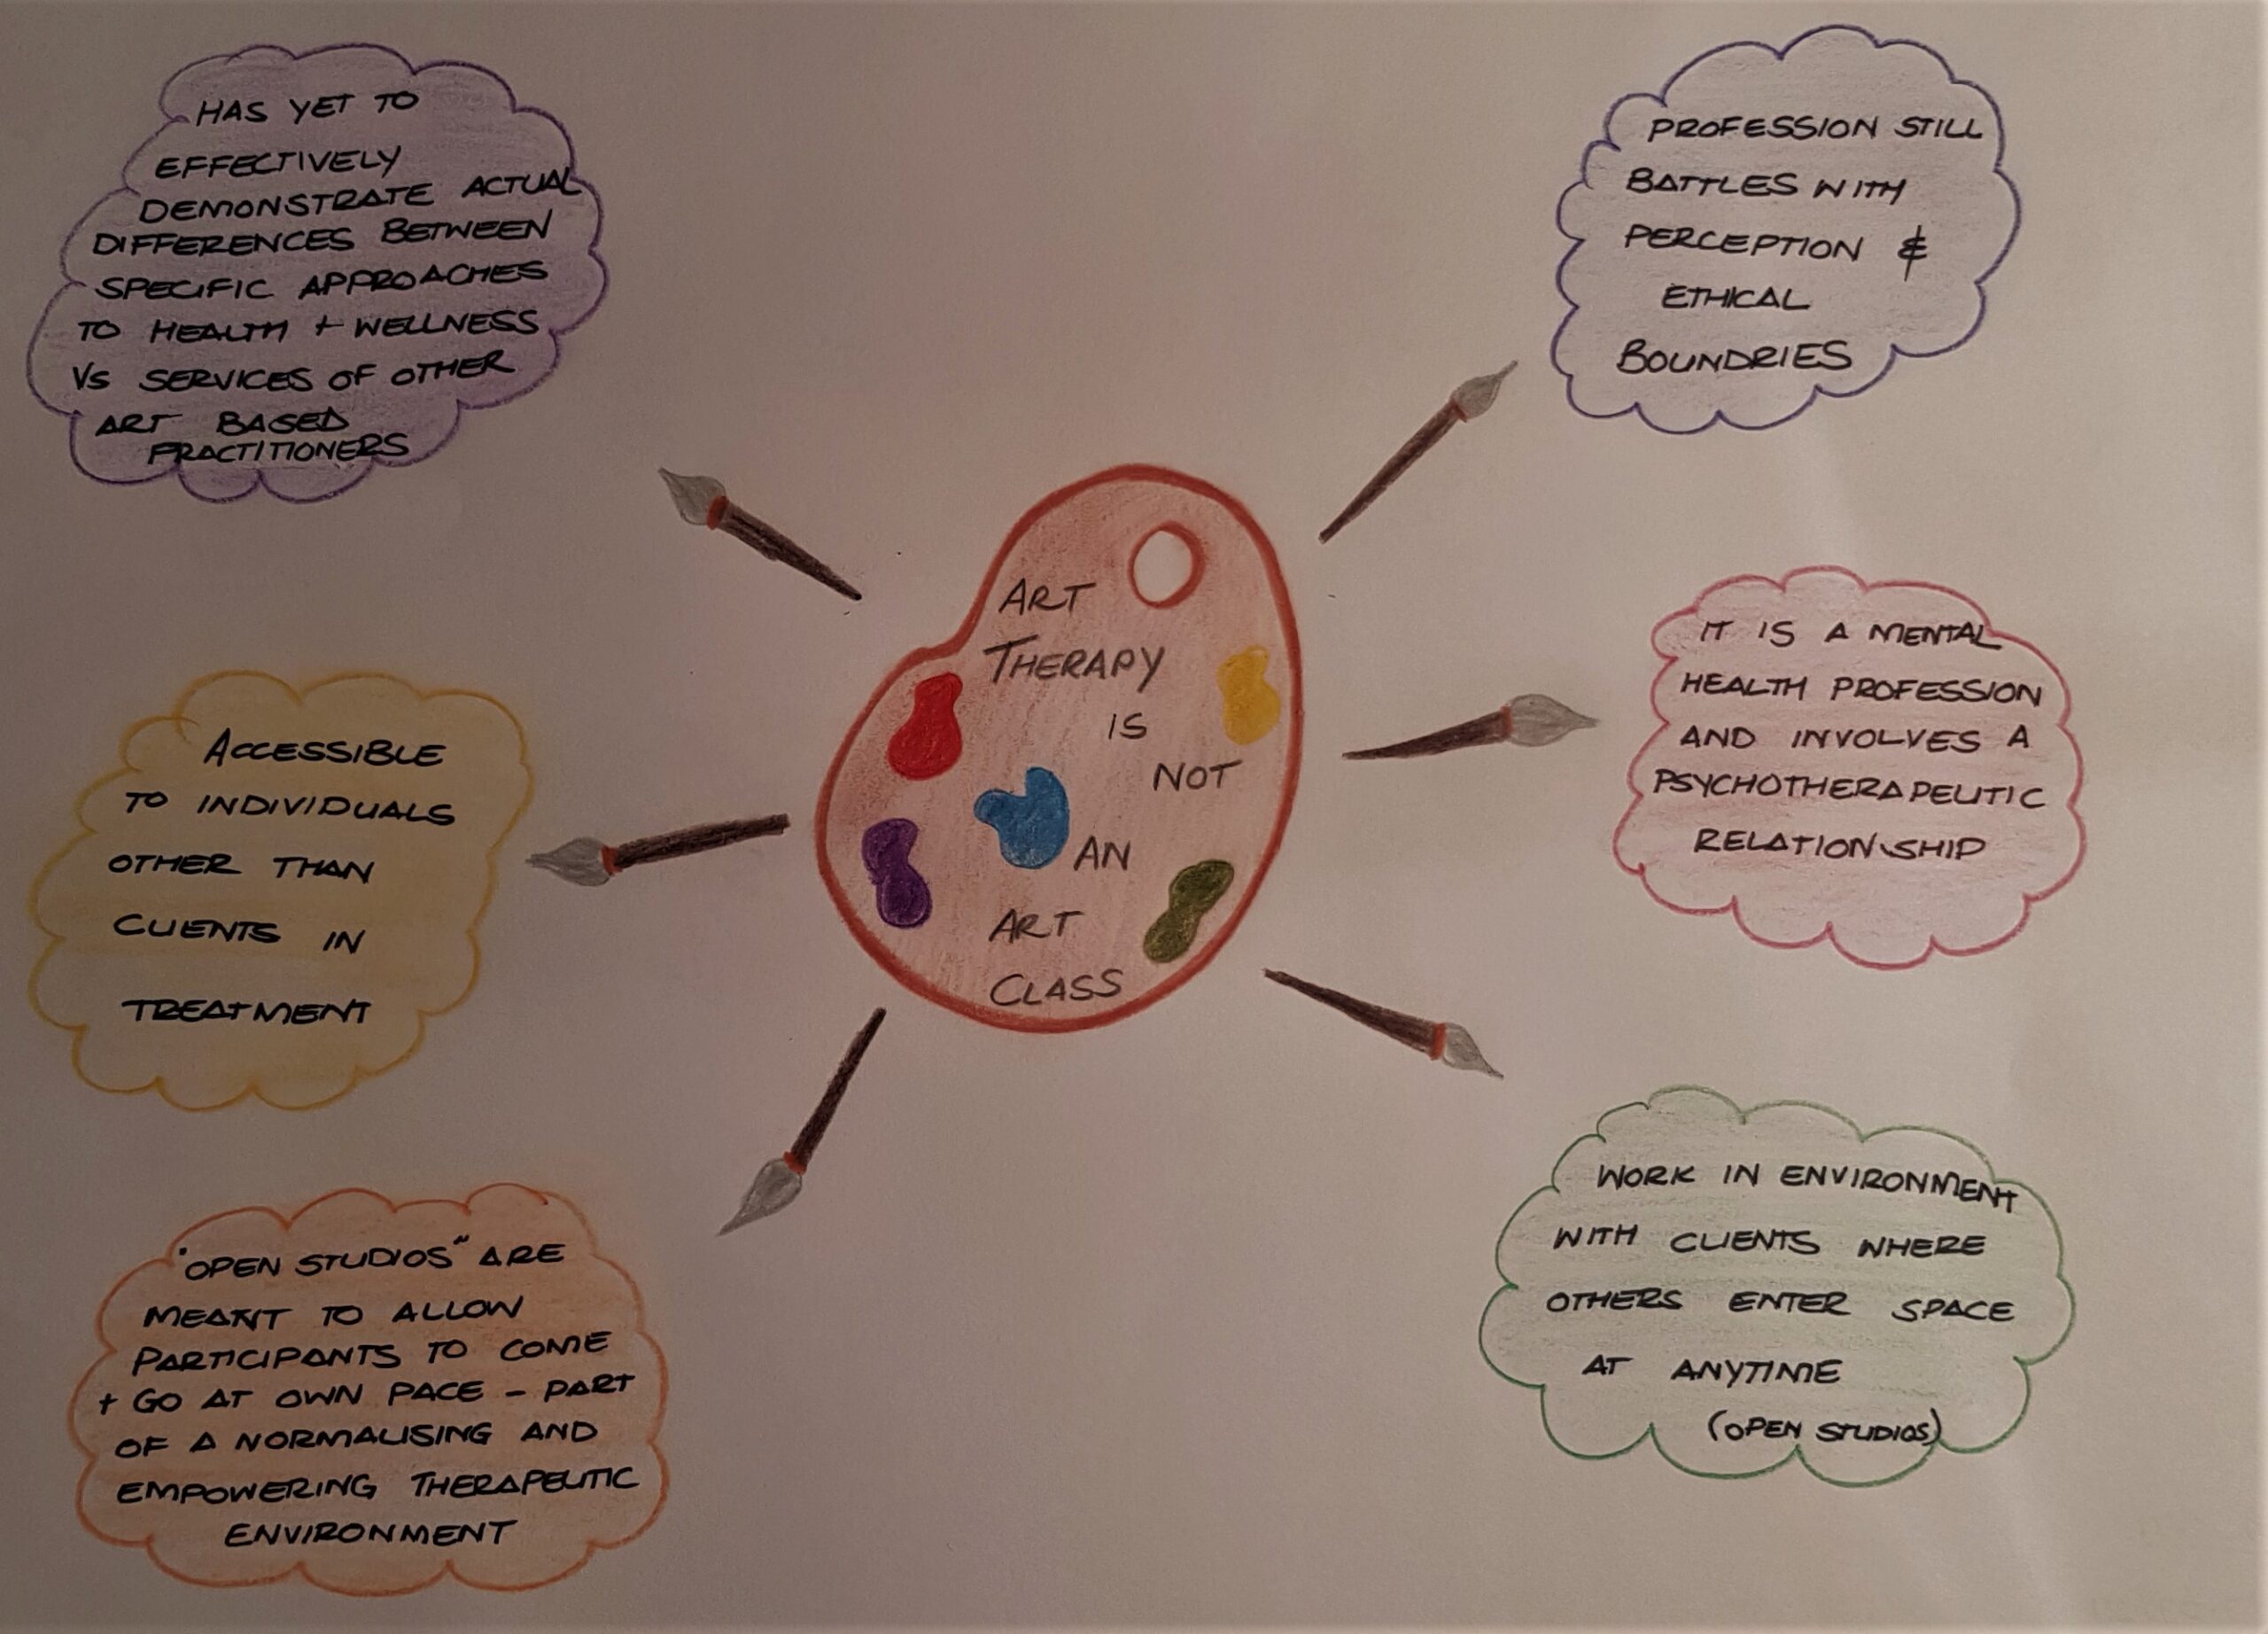 HAS YET TO
EFFECTIVELY
DEMONSTRATE ACTUAL
DIFFERENCES BETWEEN
SPECIFIC APPROACHES
TO HEALTH + WELLNESS
VS SERVICES OF OTHER
ART BASED
PRACTITIONERS
PROFESSION STILL
BATTLES WITH
PERCEPTION &
ETHICAL
BOUNDRIES
ART
THERAPY
IS
NOT
AN
ART
CLASS
ACCESSIBLE
TO INDIVIDUALS
OTHER THAN
CLIENTS IN
TREATMENT
IT IS A MENTAL
HEALTH PROFESSION
AND INVOLVES A
PSYCHOTHERAPEUTIC
RELATIONSHIP
"OPEN STUDIOS" ARE
MEANT TO ALLOW
PARTICIPANTS TO COME
+ GO AT OWN PACE - PART
OF A NORMALISING AND
EMPOWERING THERAPEUTIC
ENVIRONMENT
WORK IN ENVIRONMENT
WITH CLIENTS WHERE
OTHERS ENTER SPACE
AT ANYTIME
(OPEN STUDIOS)